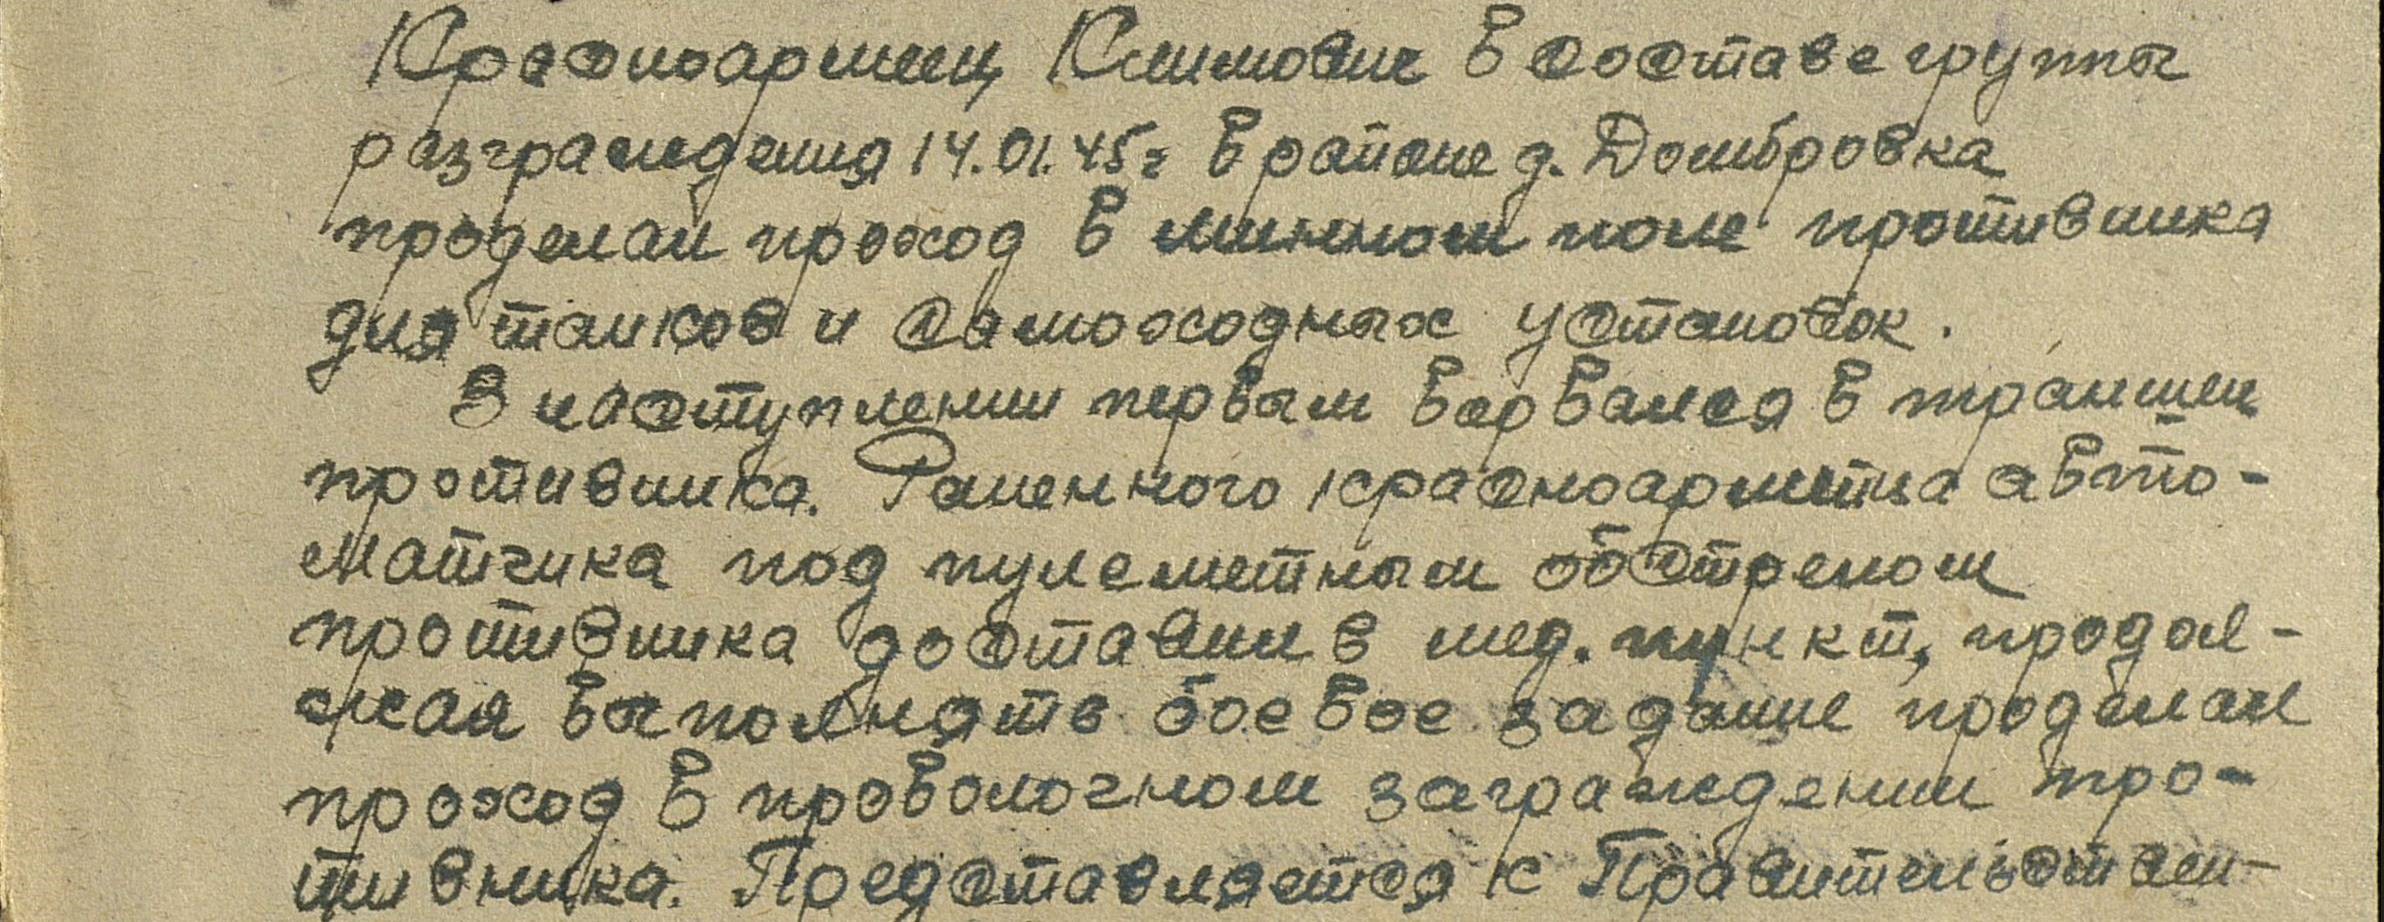 Красноармеец Климович в составе группы
разграждения 14.01.45г в районе д. Домбровка
проделал проход в минном поле противника
для танков и самоходных установок.
В наступлении первым ворвался в траншеи
противника. Раненного красноармейца авто-
матчика под пулеметным обстрелом
противника доставил в мед. пункт, продол-
жая выполнять боевое задание проделал
проход в проволочном заграждении про-
тивника. Представляется к Правительствен-